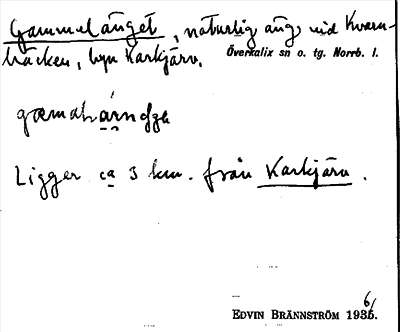 Gammelänget, naturlig äng, vid Kvarn-
bäcken, byn Karkjärv.
Överkalix sn o. tg. Norrb. l.
Ligger ca 3 km. från Karkjärv.
6/
EDVIN BRÄNNSTRÖM 1936.